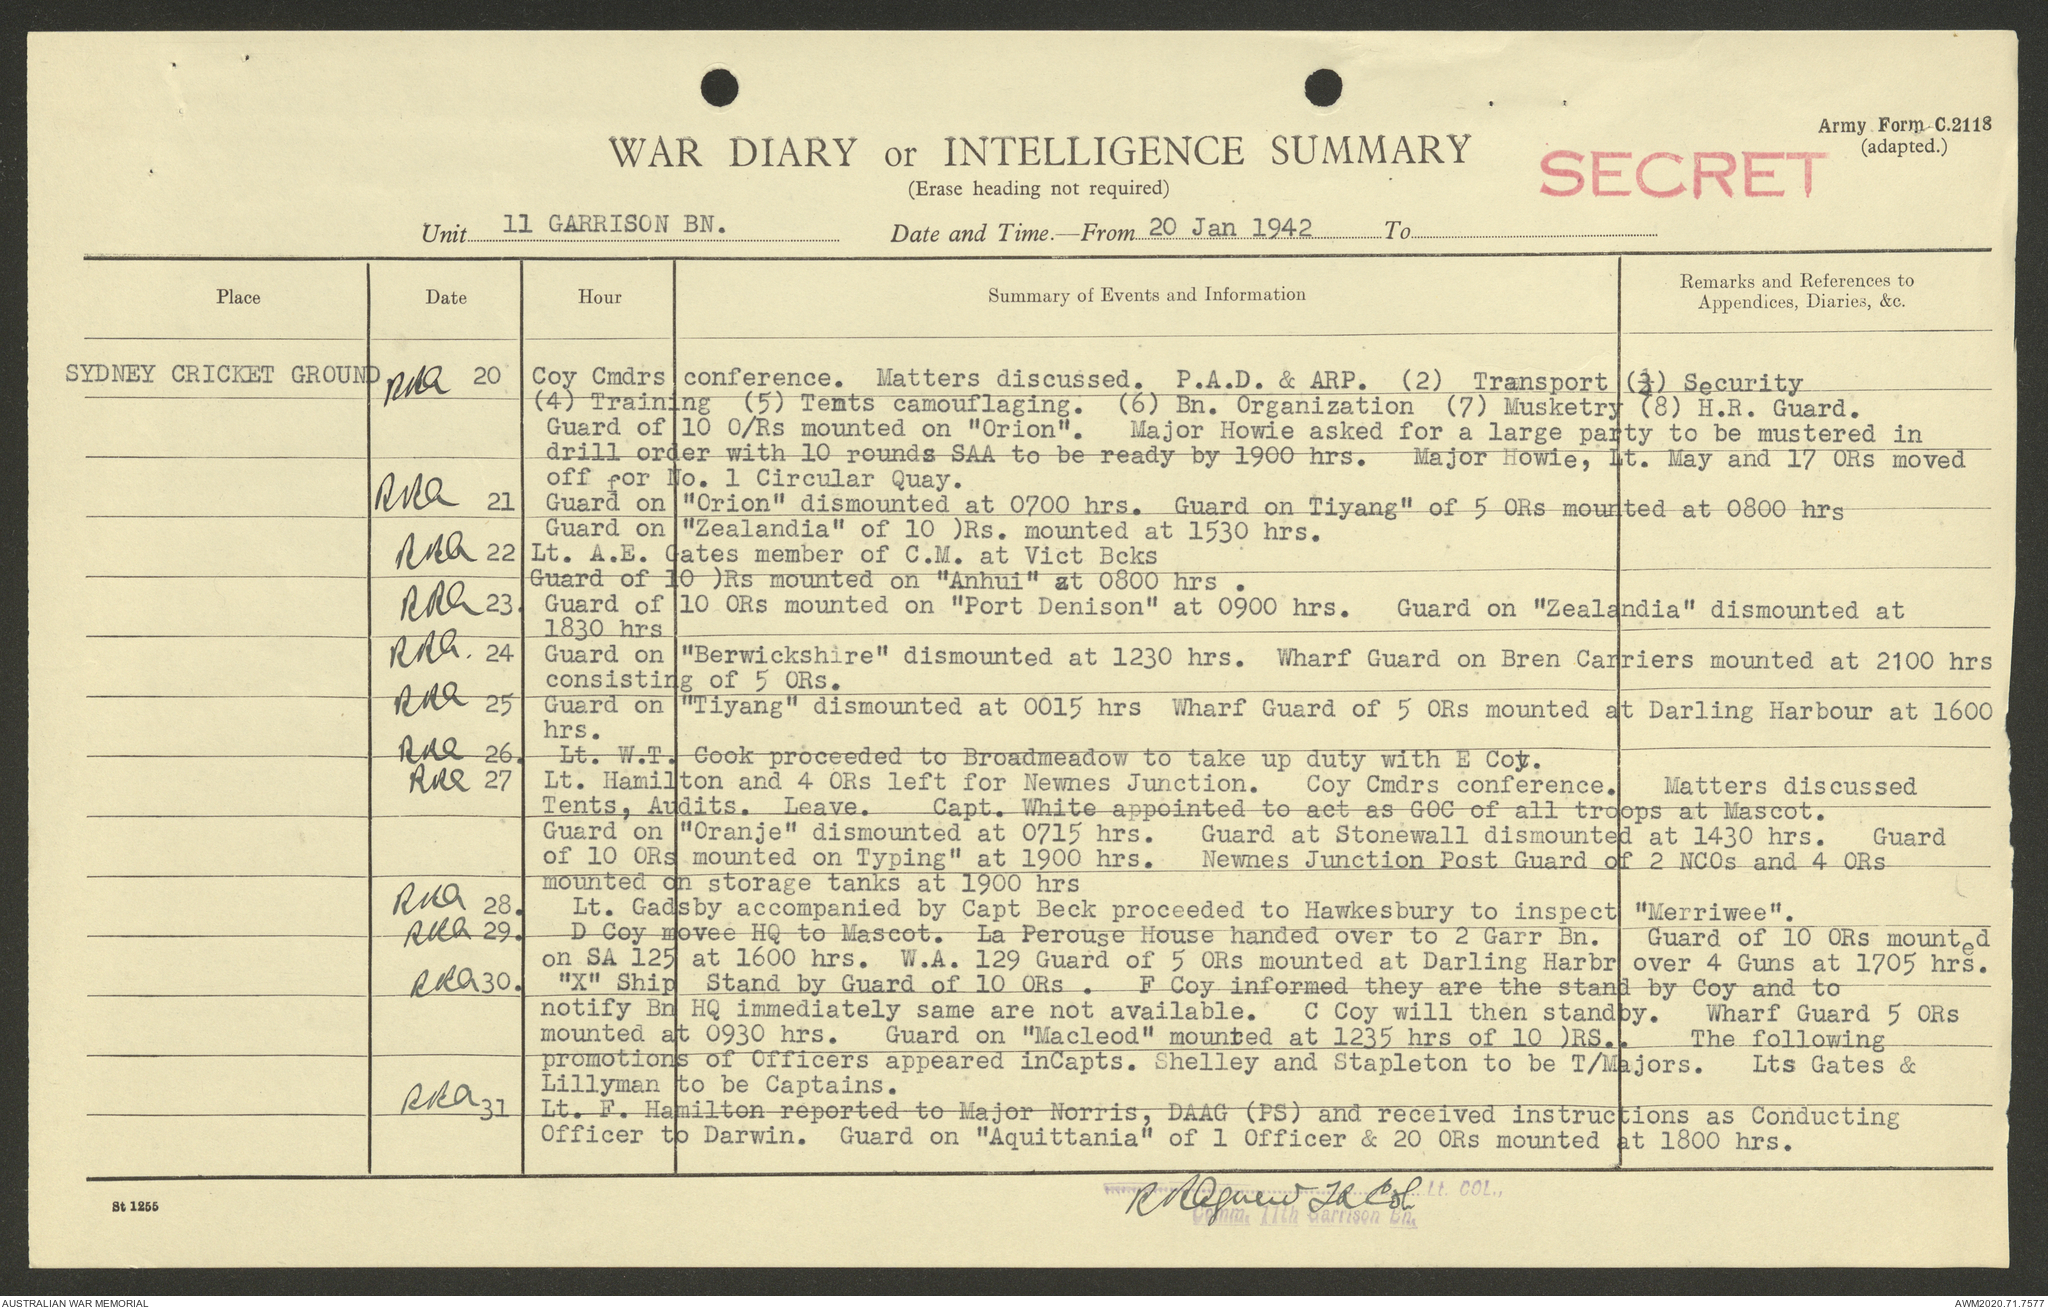 Army Form C.2118
(adapted.)
WAR DIARY or INTELLIGENCE SUMMARY
(Erase heading not required)
SECRET
Unit 11 GARRISON BN. Date and Time.—From 20 Jan 1942 To
Place Date Hour Summary of Events and Information Remarks and References to
Appendices, Diaries, &c.
SYDNEY CRICKET GROUND RRA 20 Coy Cmdrs conference. Matters discussed. P.A.D. & ARP. (2) Transport (3) Security
(4) Training (5) Temts camouflaging. (6) Bn. Organization (7) Musketry (8) H.R. Guard.
Guard of 10 O/Rs mounted on "Orion". Major Howie asked for a large party to be mustered in
drill order with 10 rounds SAA to be ready by 1900 hrs. Major Howie, Lt. May and 17 ORs moved
off for No. 1 Circular Quay.
RRA 21 Guard on "Orion" dismounted at 0700 hrs. Guard on Tiyang" of 5 ORs mounted at 0800 hrs
Guard on "Zealandia" of 10 )Rs. mounted at 1530 hrs.
RRA 22 Lt. A.E. Gates member of C.M. at Vict Bcks
Guard of 10 )Rs mounted on "Anhui" at 0800 hrs .
RRA 23. Guard of 10 ORs mounted on "Port Denison" at 0900 hrs. Guard on "Zealandia" dismounted at
1830 hrs
RRA. 24 Guard on "Berwickshire" dismounted at 1230 hrs. Wharf Guard on Bren Carriers mounted at 2100 hrs
consisting of 5 ORs.
RRA 25 Guard on "Tiyang" dismounted at 0015 hrs Wharf Guard of 5 ORs mounted at Darling Harbour at 1600
hrs.
RRA 26. Lt. W.T. Cook proceeded to Broadmeadow to take up duty with E Coy.
RRA 27 Lt. Hamilton and 4 ORs left for Newnes Junction. Coy Cmdrs conference. Matters discussed
Tents, Audits. Leave. Capt. White appointed to act as GOC of all troops at Mascot.
Guard on "Oranje" dismounted at 0715 hrs. Guard at Stonewall dismounted at 1430 hrs. Guard
of 10 ORs mounted on Typing" at 1900 hrs. Newnes Junction Post Guard of 2 NCOs and 4 ORs
mounted on storage tanks at 1900 hrs
RRA 28. Lt. Gadsby accompanied by Capt Beck proceeded to Hawkesbury to inspect "Merriwee".
RRA 29. D Coy movee HQ to Mascot. La Perouse House handed over to 2 Garr Bn. Guard of 10 ORs mounted
on SA 125 at 1600 hrs. W.A. 129 Guard of 5 ORs mounted at Darling Harbr over 4 Guns at 1705 hrs.
RRA 30. "X" Ship Stand by Guard of 10 ORs . F Coy informed they are the stand by Coy and to
notify Bn HQ immediately same are not available. C Coy will then standby. Wharf Guard 5 ORs
mounted at 0930 hrs. Guard on "Macleod" mounted at 1235 hrs of 10 )RS.. The following
promotions of Officers appeared inCapts. Shelley and Stapleton to be T/Majors. Lts Gates &
Lillyman to be Captains.
RRA 31 Lt. F. Hamilton reported to Major Norris, DAAG (PS) and received instructions as Conducting
Officer to Darwin. Guard on "Aquittania" of 1 Officer & 20 ORs mounted at 1800 hrs.
St 1255
R R Agnew Lt Col Lt. COL.,
Comm. 11th Garrison Bn.
AUSTRALIAN WAR MEMORIAL AWM2020.71.7577